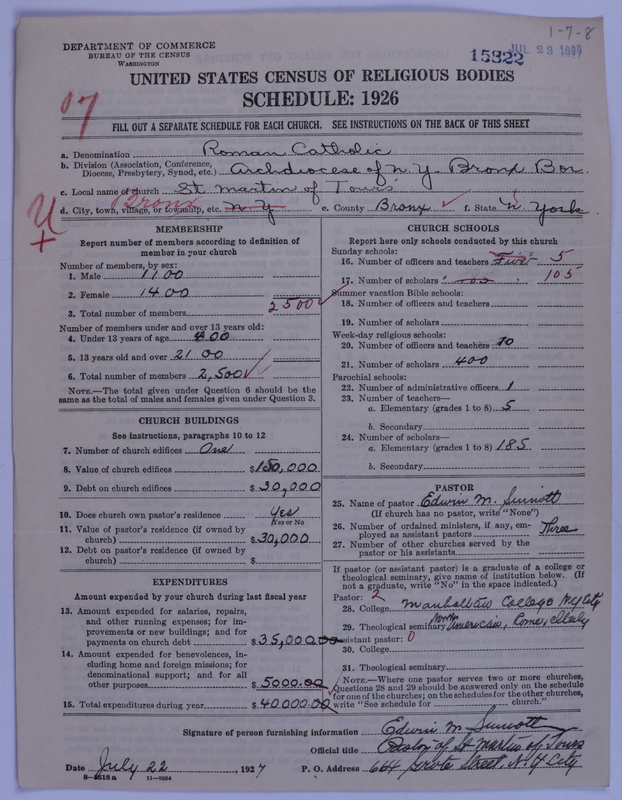 1-7-8
DEPARTMENT OF COMMERCE
BUREAU OF THE CENSUS
WASHINGTON
15822
JUL 23
UNITED STATES CENSUS OF RELIGIOUS BODIES
SCHEDULE: 1926
FILL OUT A SEPARATE SCHEDULE FOR EACH CHURCH. SEE INSTRUCTIONS ON THE BACK OF THIS SHEET
a. Denomination Roman Catholic
b. Division (Association, Conference, Diocese, Presbytery, Synod, etc.) Archdiocese of N.Y. Bronx Bor.
c. Local name of church St Martin of Tours
d. City, town, village, or township, etc. N Y Bronx e. County Bronx f. State N York
MEMBERSHIP
Report number of members according to definition of
member in your church
Number of members, by sex:
1. Male 1100
2. Female 1400
3. Total number of members 2500
Number of members under and over 13 years old:
4. Under 13 years of age 400
5. 13 years old and over 2100
6. Total number of members 2,500
NOTE.—The total given under Question 6 should be the
same as the total of males and females given under Question 3.
CHURCH BUILDINGS
See instructions, paragraphs 10 to 12
7. Number of church edifices One
8. Value of church edifices $150,000
9. Debt on church edifices $30,000
10. Does church own pastor's residence Yes
Yes or No
11. Value of pastor's residence (if owned by
church) $30,000
12. Debt on pastor's residence (if owned by
church) $
EXPENDITURES
Amount expended by your church during last fiscal year
13. Amount expended for salaries, repairs,
and other running expenses; for im-
provements or new buildings; and for
payments on church debt $35,000.00
14. Amount expended for benevolences, in-
cluding home and foreign missions; for
denominational support; and for all
other purposes $5000.00
15. Total expenditures during year $40.000.00
CHURCH SCHOOLS
Report here only schools conducted by this church
Sunday schools:
16. Number of officers and teachers Five 5
17. Number of scholars 105
Summer vacation Bible schools:
18. Number of officers and teachers
19. Number of scholars
Week-day religious schools:
20. Number of officers and teachers 10
21. Number of scholars 400
Parochial schools:
22. Number of administrative officers 1
23. Number of teachers—
a. Elementary (grades 1 to 8) 5
b. Secondary
24. Number of scholars—
a. Elementary (grades 1 to 8) 185
b. Secondary
PASTOR
25. Name of pastor Edwin M. Sinnott
(If church has no pastor, write "None")
26. Number of ordained ministers, if any, em-
ployed as assistant pastors Three
27. Number of other churches served by the
pastor or his assistants
If pastor (or assistant pastor) is a graduate of a college or
theological seminary, give name of institution below. (If
not a graduate, write "No" in the space indicated.)
Pastor: 2
28. College Manhattan College N Y City
29. Theological seminary North American, Rome, Italy
Assistant pastor: 0
30. College
31. Theological seminary
NOTE.—Where one pastor serves two or more churches,
Questions 28 and 29 should be answered only on the schedule
for one of the churches; on the schedules for the other churches,
write "See schedule for church."
Signature of person furnishing information Edwin M Sinnott
Official title Pastor of St Martin of Tours
Date July 22, 1927 P. O. Address 664 Grote Street, N.Y City
11—9054